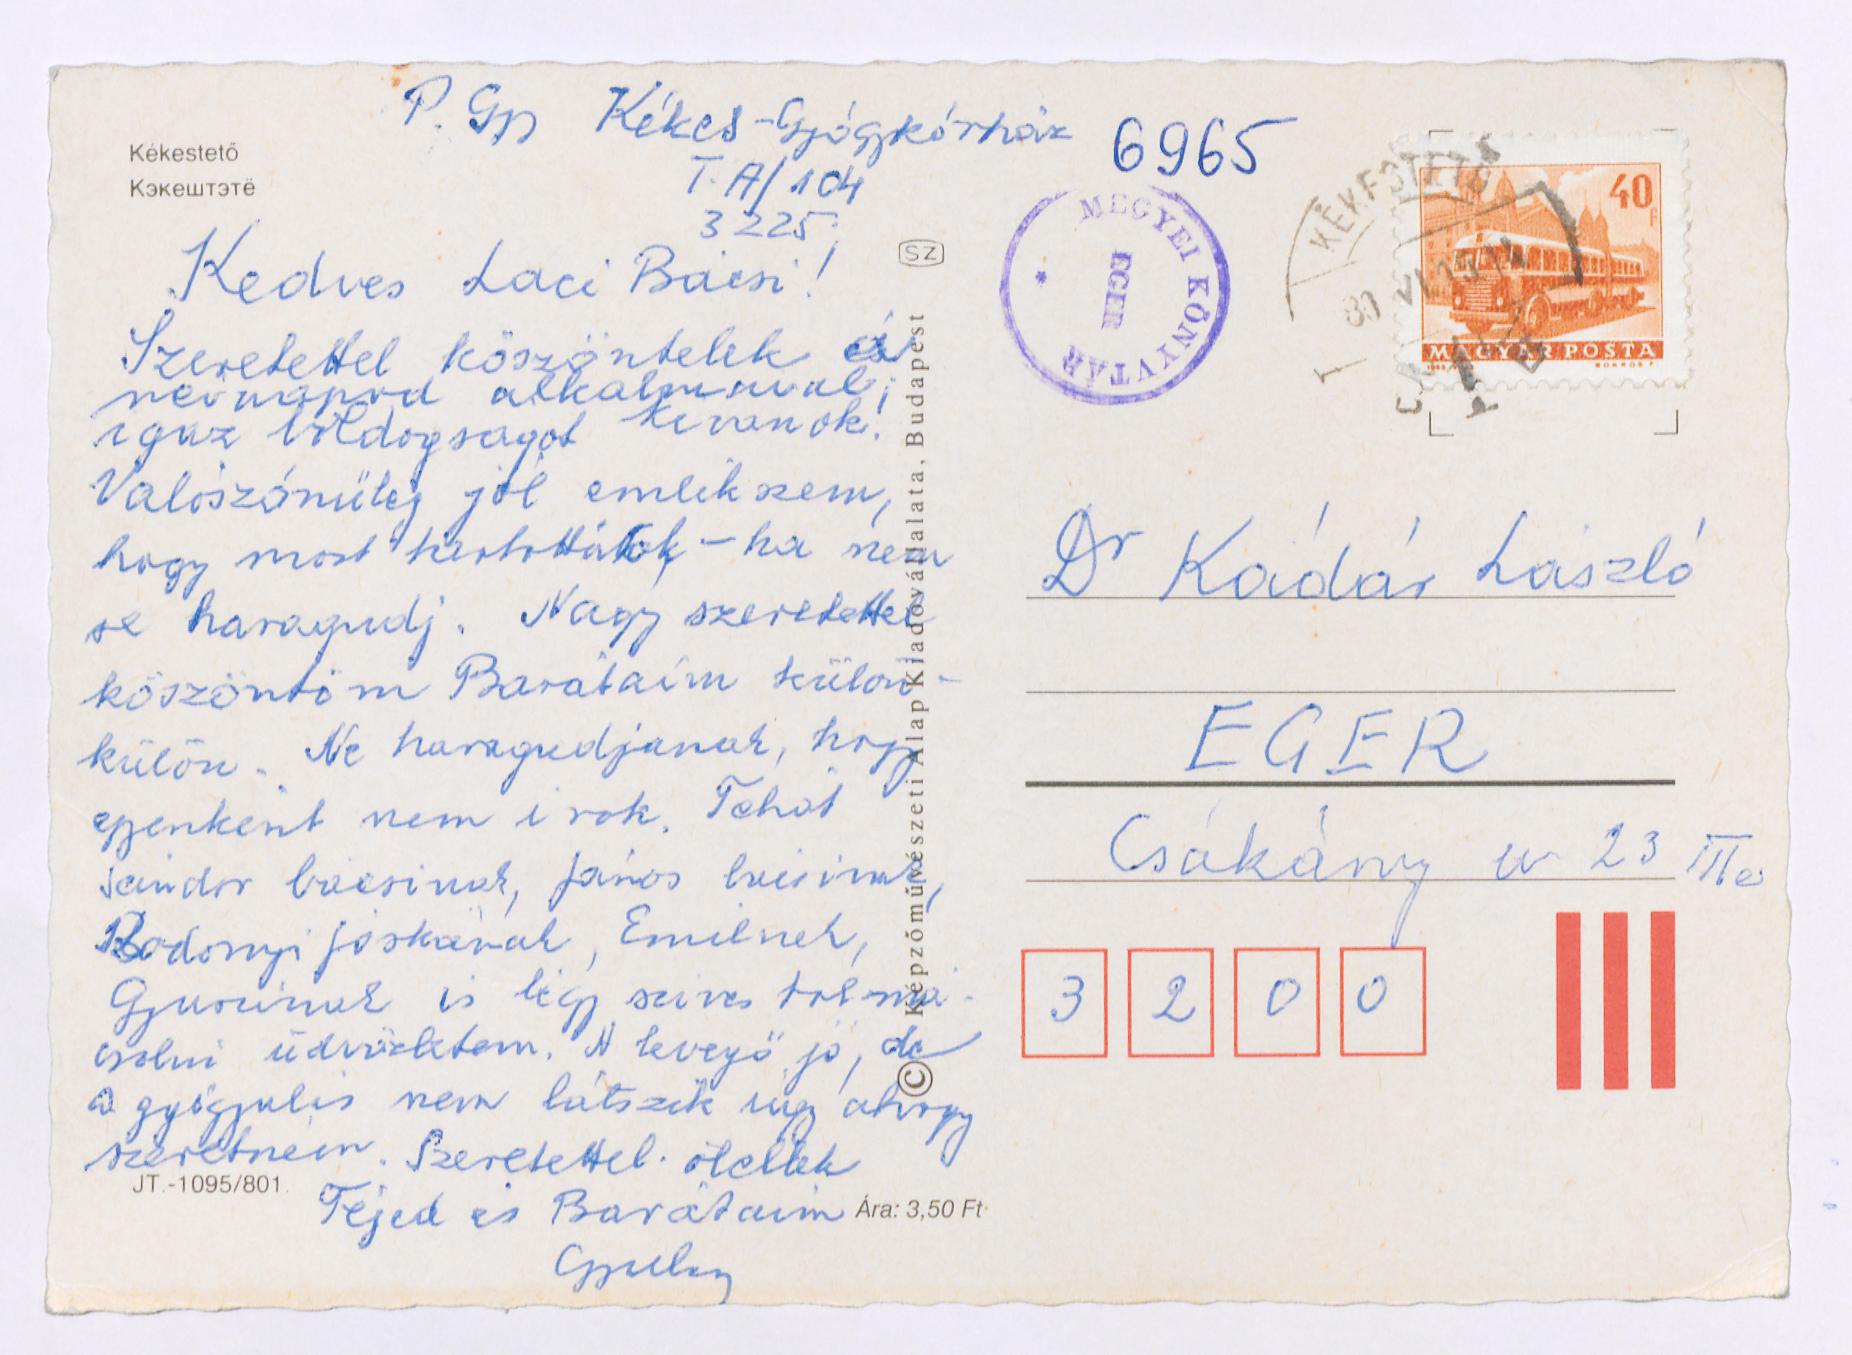 P. Gy Kékes-Gyógykórház
T. A/104
3225
6965
Kékestető
Кэкештэтё
Kedves Laci Bácsi!
Szeretettel köszöntelek
névnapod alkalmával,
igaz boldogságot kívánok!
Valószínűleg jól emlékszem,
hogy most tartottátok, – ha nem
se haragudj. Nagy szeretettel
köszöntöm Barátaim külön-
külön. Ne haragudjanak, hogy
egyenként nem irok. Tehát
Sándor bácsinak, János bácsinak,
Bodonyi Jóskának, Emilnek,
Gyurinak is légy szives tolmá-
csolni üdvözletem. A levegő jó, de
a gyógyulás nem látszik úgy ahogy
szeretném. Szeretettel ölellek
Téjed és Barátaim
Gyula
JT.-1095/801.
Ára: 3,50 Ft
SZ
© Képzőművészeti Alap Kiadóvállalata, Budapest
MEGYEI KÖNYVTÁR
EGER
*
KÉKESTETŐ
40 f
MAGYAR POSTA
Dr Kádár László
EGER
Csákány u 23 III
3 2 0 0